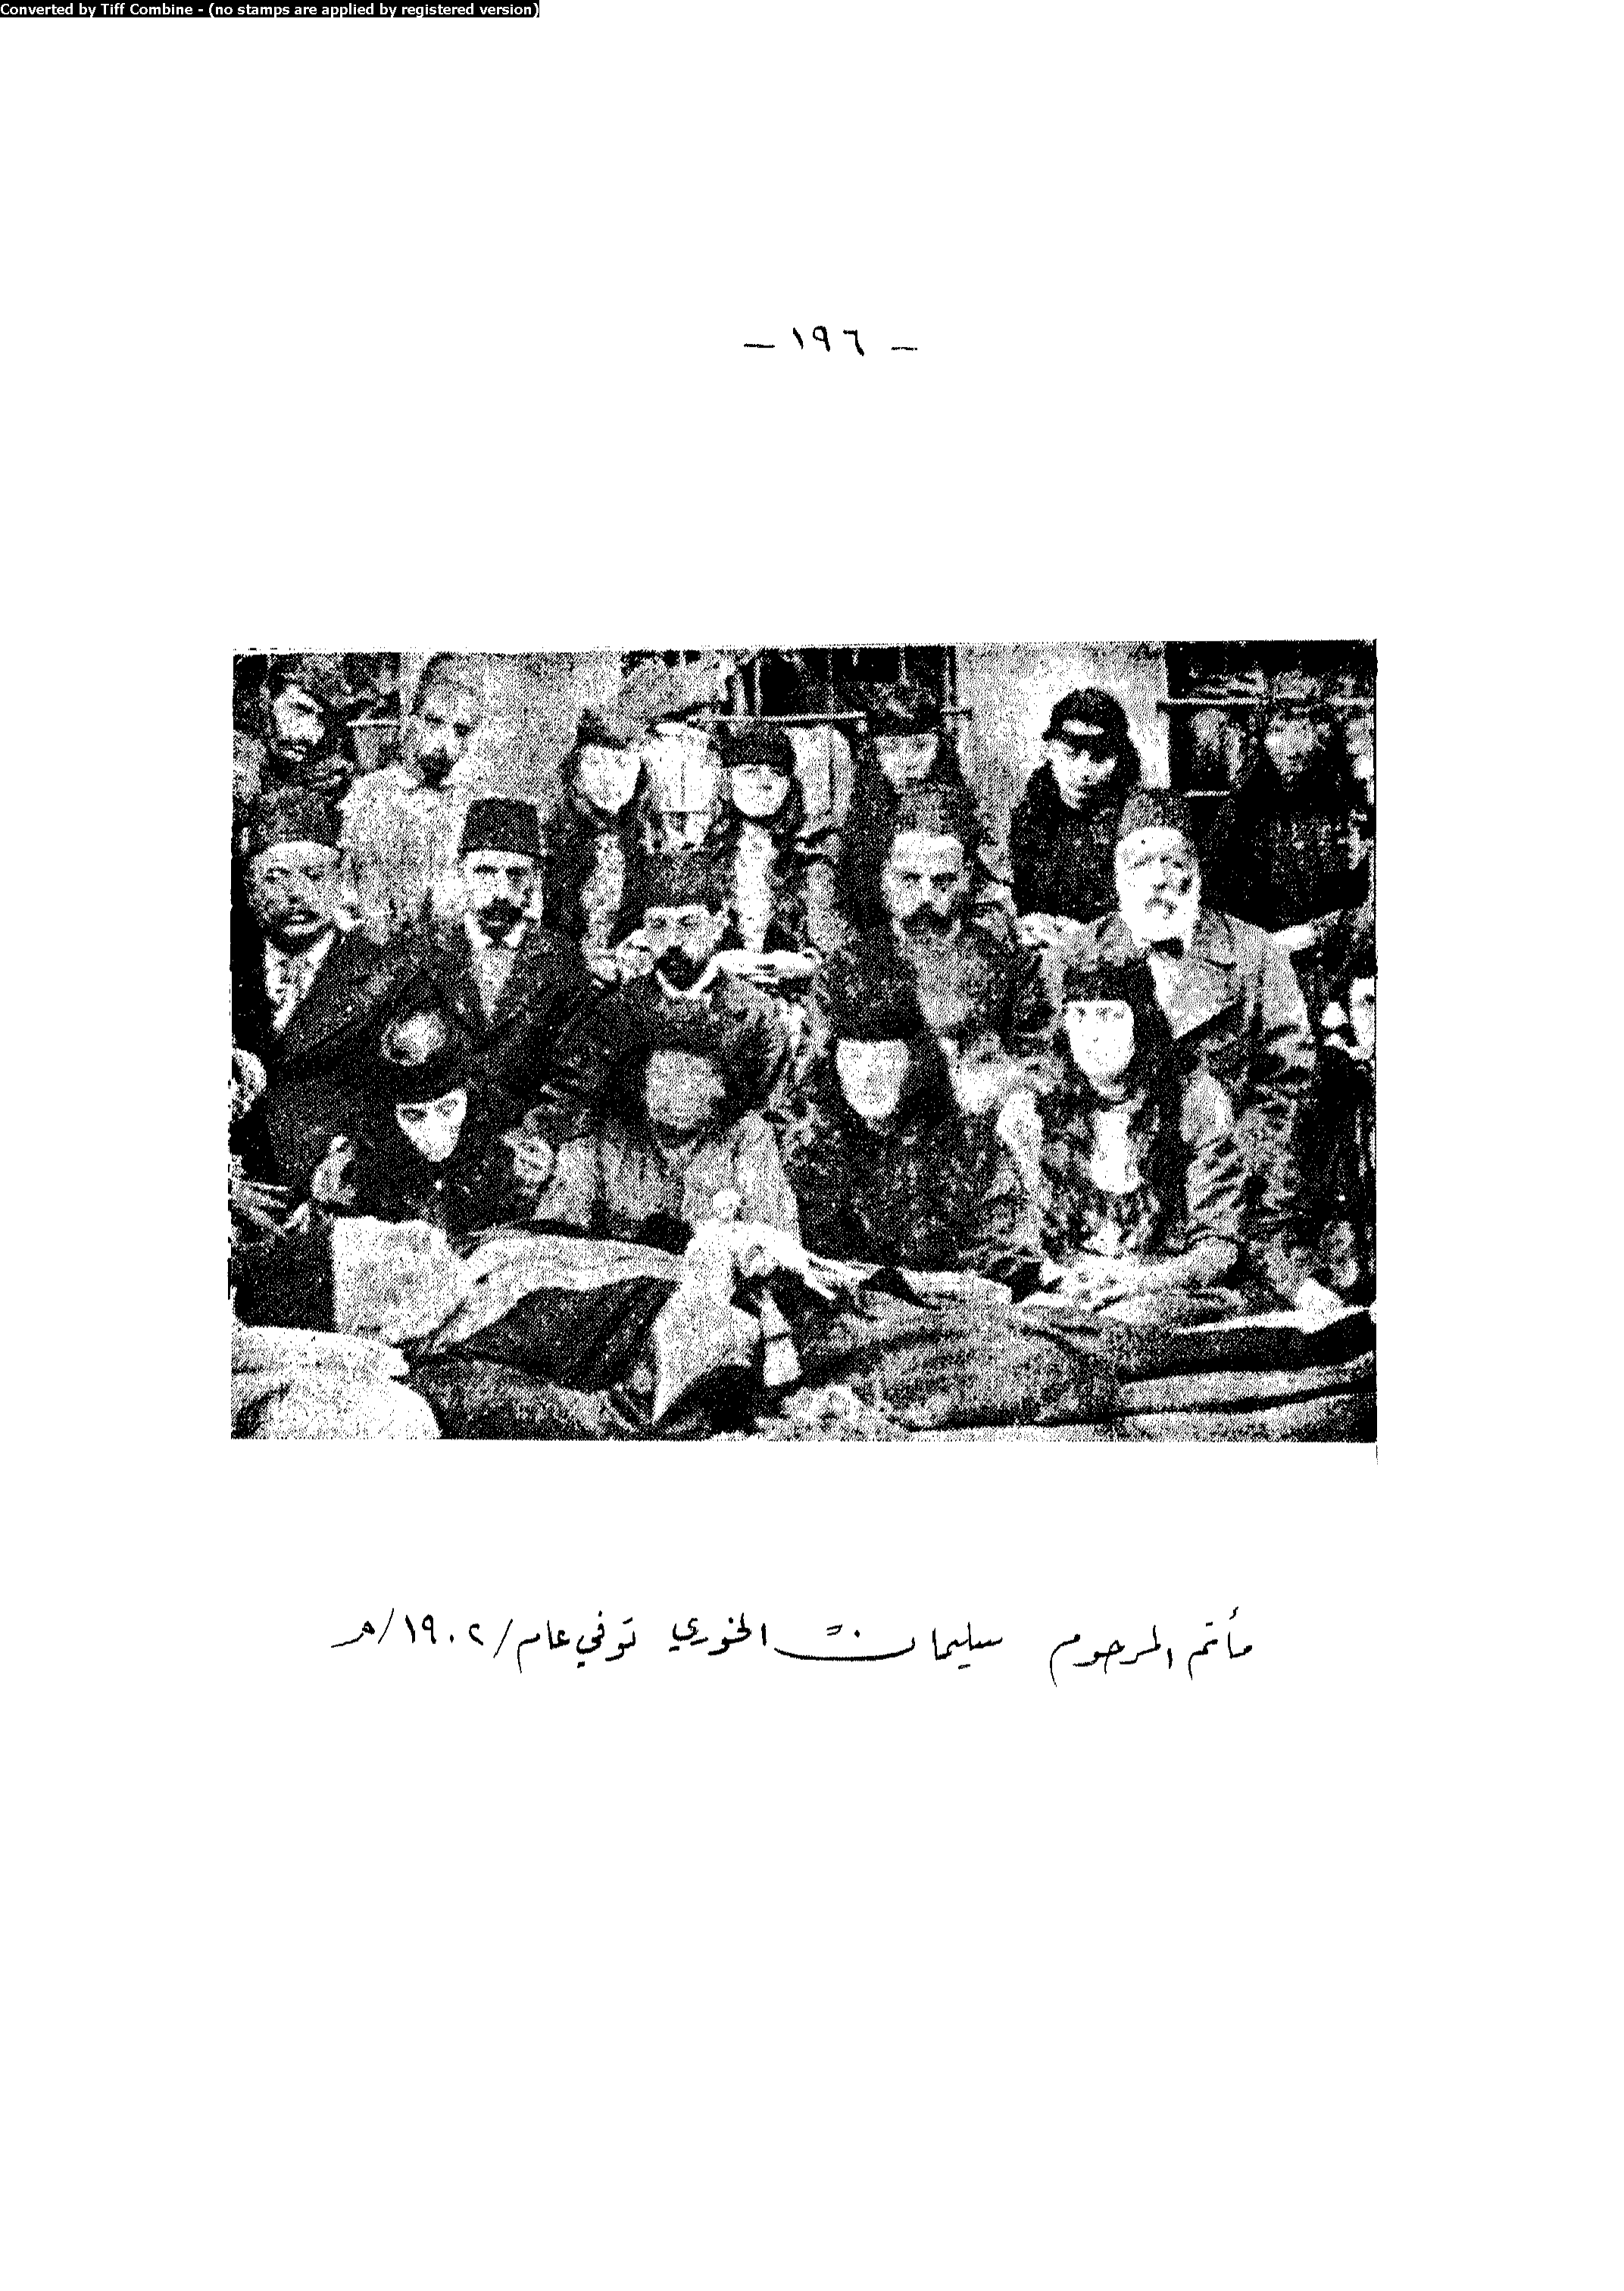 Converted by Tiff Combine - (no stamps are applied by registered version)
- ١٩٦ -
مأتم المرحوم سليمان الخوري توفي عام /١٩٠٢/هـ